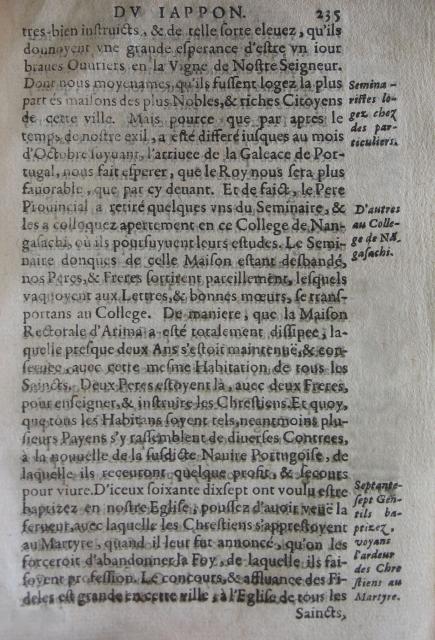 DV IAPPON. 235
tres-bien instruicts, & de telle sorte eleuez, qu'ils
donnoyent vne grande esperance d'estre vn iour
braues Ouuriers en la Vigne de Nostre Seigneur.
Dont nous moyennames, qu'ils fussent logez la plus
part és maisons des plus Nobles, & riches Citoyens
de cette ville. Mais pource que par apres le
temps de nostre exil, a esté differé iusques au mois
d'Octobre suyuant, l'arriuee de la Galeace de Por-
tugal, nous fait esperer, que le Roy nous sera plus
fauorable, que par cy deuant. Et de faict, le Pere
Prouincial a retiré quelques vns du Seminaire, &
les a colloquez apertement en ce College de Nan-
gasachi, où ils poursuyuent leurs estudes. Le Semi-
naire donques de celle Maison estant desbandé,
nos Peres, & Freres sortirent pareillement, lesquels
vaquoyent aux Lettres, & bonnes mœurs, se trans-
portans au College. De maniere, que la Maison
Rectorale d'Arima a esté totalement dissipee, la-
quelle presque deux Ans s'estoit maintenuë, & con-
seruee, auec cette mesme Habitation de tous les
Saincts. Deux Peres estoyent là, auec deux Freres,
pour enseigner, & instruire les Chrestiens. Et quoy,
que tous les Habitans soyent tels, neantmoins plu-
sieurs Payens s'y rassemblent de diuerses Contrees,
à la nouuelle de la susdicte Nauire Portugoise, de
laquelle ils receuront quelque profit, & secours
pour viure. D'iceux soixante dixsept ont voulu estre
baptizez en nostre Eglise, poussez d'auoir veuë la
ferueur, auec laquelle les Chrestiens s'apprestoyent
au Martyre, quand il leur fut annoncé, qu'on les
forceroit d'abandonner la Foy, de laquelle ils fai-
soyent profession. Le concours, & affluance des Fi-
deles est grande en cette ville, à l'Eglise de tous les
Saincts,
Semina-
ristes lo-
gez chez
des par-
ticuliers.
D'autres
au Colle-
ge de Nā
gasachi.
Septante-
sept Gen-
tils ba-
ptizez,
voyans
l'ardeur
des Chre
stiens au
Martyre.